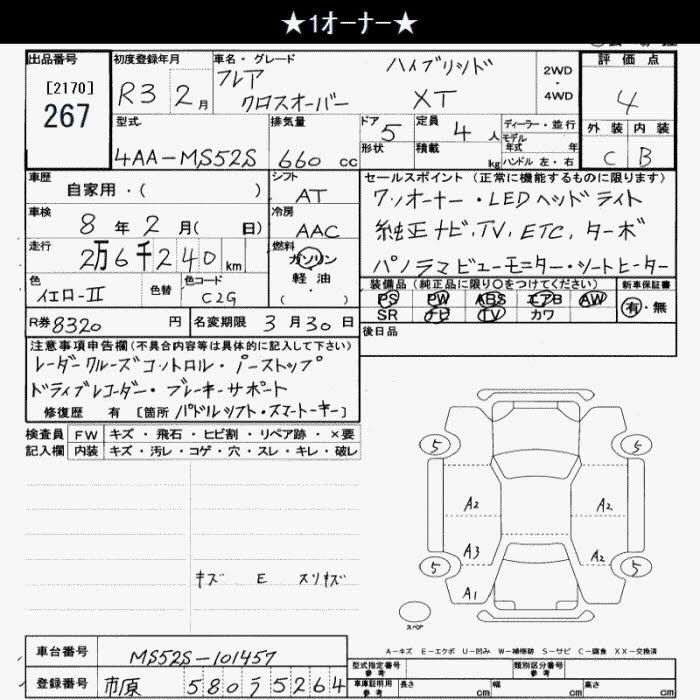 ★1オーナー★
出品番号
[2170]
267
初度登録年月
R3 2月
車名・グレード
フレア ハイブリッド
クロスオーバー XT
2WD
4WD
評価点
4
外装 内装
C B
型式
4AA-MS52S
排気量
660 cc
ドア 5
形状
定員 4 人
積載 kg
ディーラー・並行
モデル
年式 年
ハンドル 左・右
車歴
自家用・( )
シフト
AT
車検
8年2月( 日)
冷房
AAC
走行
2万6千240 km
燃料
ガソリン
軽油
( ・ )
色
イエローII
色替
色コード
C2G
R券 8320 円
名変期限 3月30日
セールスポイント(正常に機能するものに限ります)
ワンオーナー・LEDヘッドライト
純正ナビ、TV、ETC、ターボ
パノラマビューモニター・シートヒーター
装備品(純正品に限り○をつけてください)
PS PW ABS エアB AW
SR ナビ TV カワ
新車保証書
有・無
後日品
注意事項申告欄(不具合内容等は具体的に記入して下さい)
レーダークルーズコントロール・iーストップ
ドライブレコーダー・ブレーキサポート
修復歴 有 [箇所 パドルシフト・スマートキー]
検査員 FW キズ・飛石・ヒビ割・リペア跡・×要
記入欄 内装 キズ・汚レ・コゲ・穴・スレ・キレ・破レ
キズ E スリキズ
5 5
A2 A2
A3 A2
5 5
A1
スペア
A-キズ E-エクボ U-凹み W-補修跡 S-サビ C-腐食 XX-交換済
車台番号 MS52S-101457
登録番号 市原 580 ラ 5264
型式指定番号
参考
類別区分番号
参考
車庫証明用
参考
長さ cm 幅 cm 高さ cm